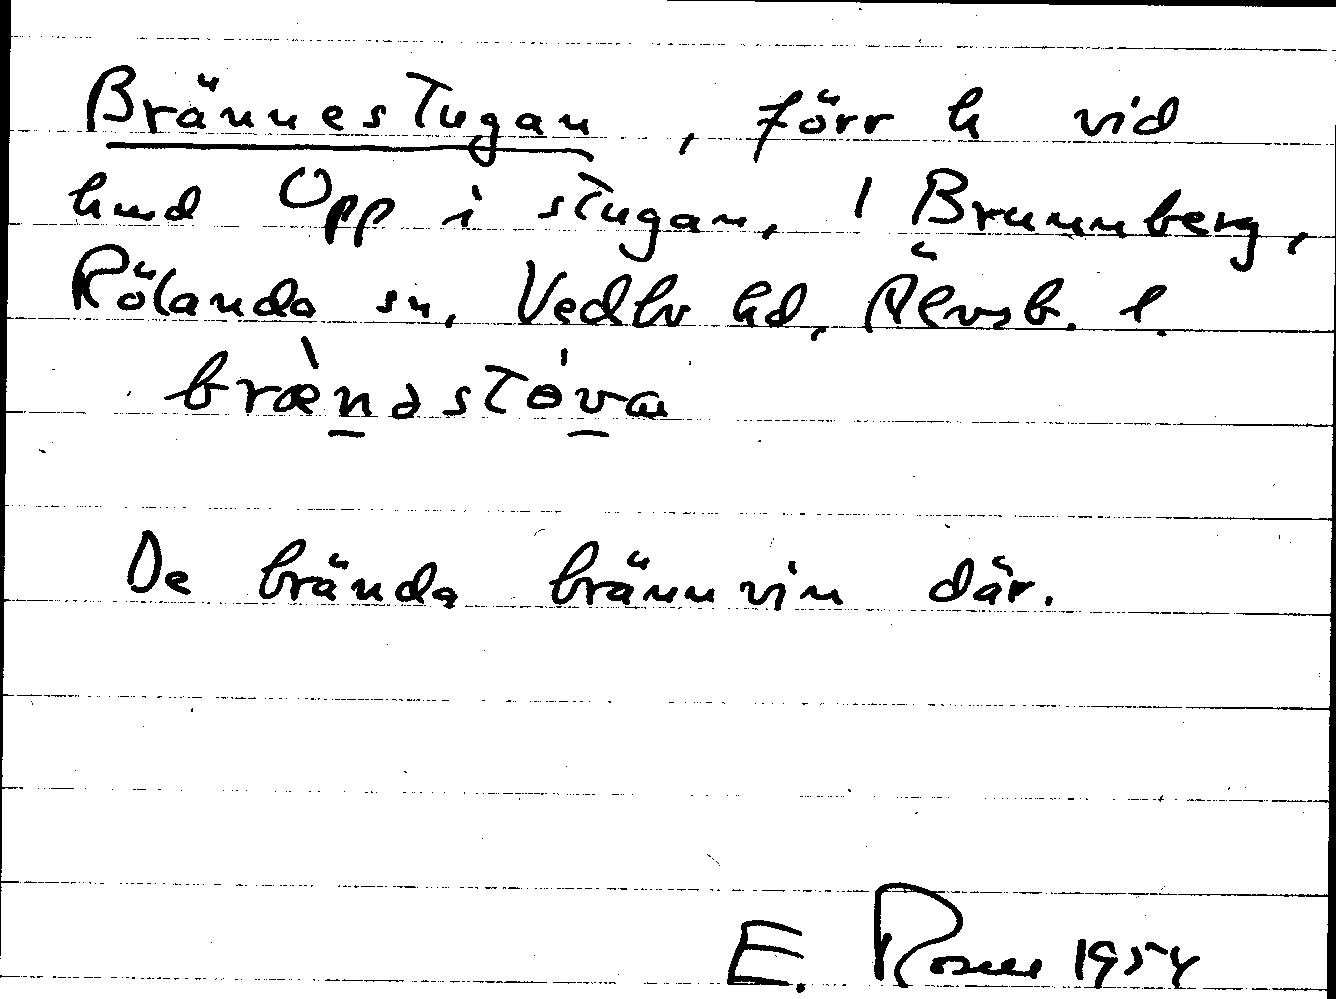 Brännestugan, förr h vid
hmd Opp i stugan, 1 Brunnberg,
Rölanda sn, Vedbo hd, Älvsb. l.
bræ̀nəstɵ́va
De brända brännvin där.
E. 1954